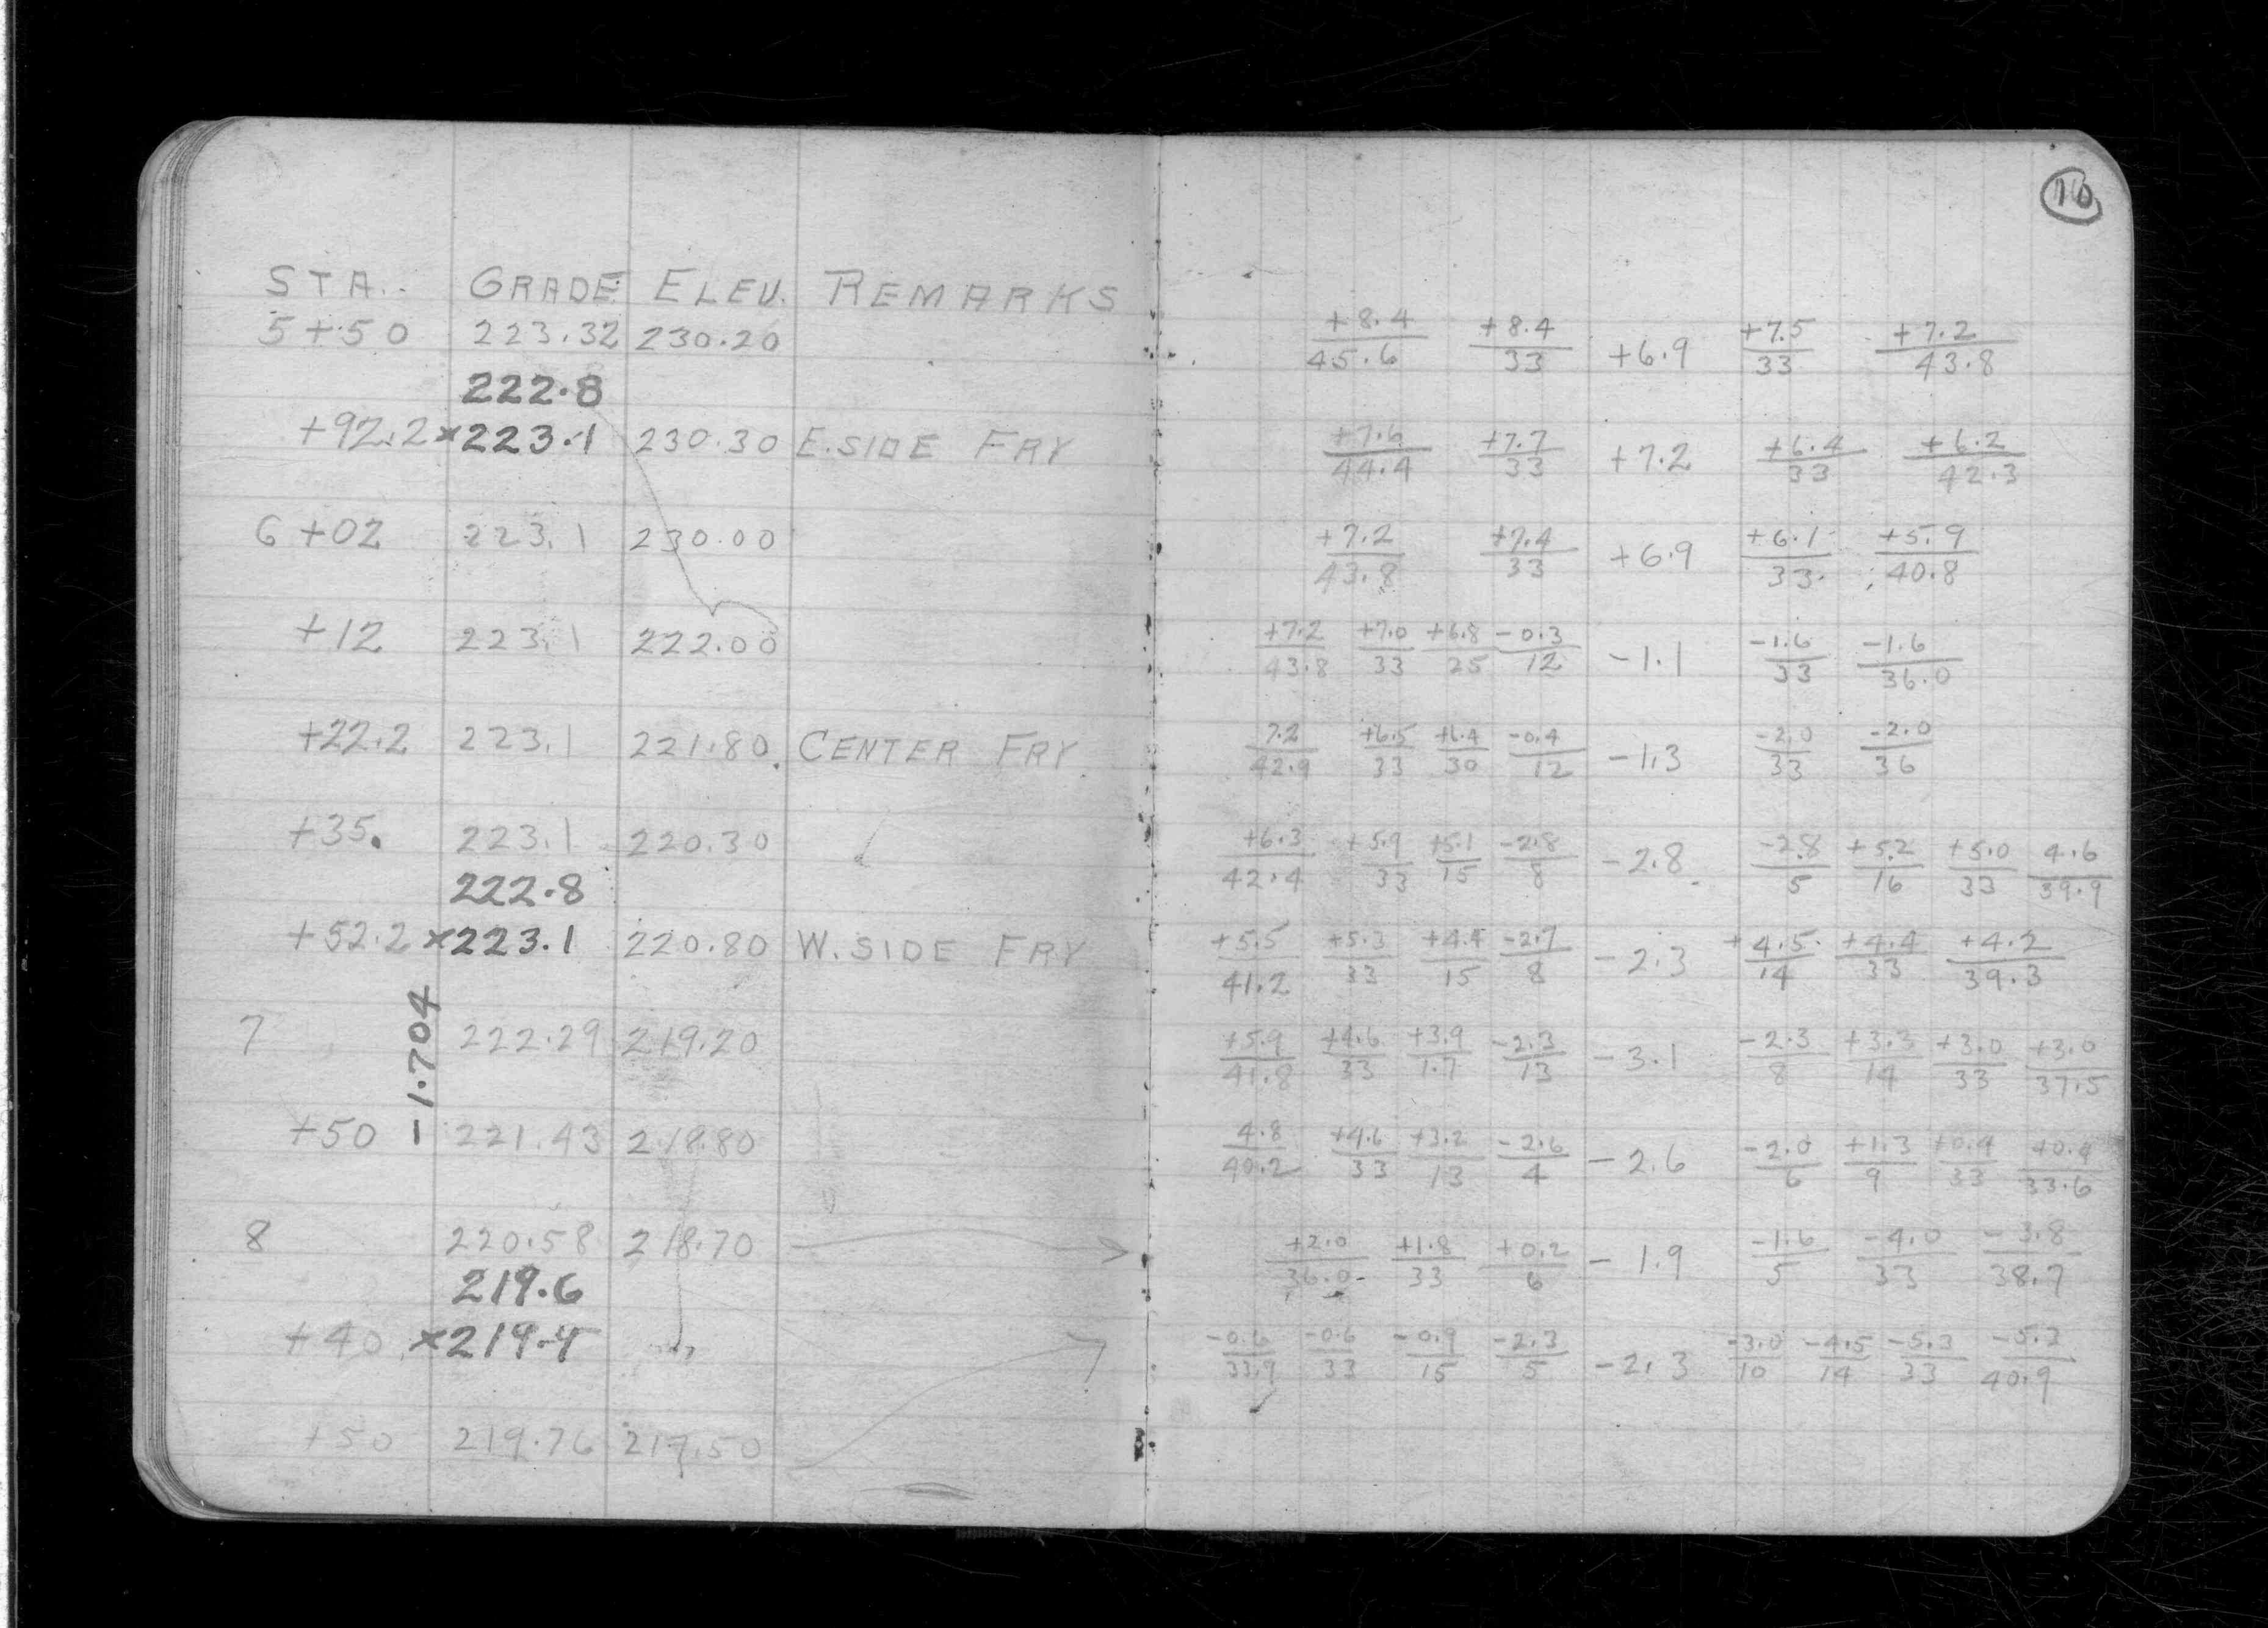 10
STA. GRADE ELEV. REMARKS
5+50 223.32 230.20 +8.4/45.6 +8.4/33 +6.9 +7.5/33 +7.2/43.8
222.8
+92.2 ×223.1 230.30 E.SIDE FRY +7.6/44.4 +7.7/33 +7.2 +6.4/33 +6.2/42.3
6+02 223.1 230.00 +7.2/43.8 +7.4/33 +6.9 +6.1/33 +5.9/40.8
+12 223.1 222.00 +7.2/43.8 +7.0/33 +6.8/25 -0.3/12 -1.1 -1.6/33 -1.6/36.0
+22.2 223.1 221.80 CENTER FRY. 7.2/42.9 +6.5/33 +6.4/30 -0.4/12 -1.3 -2.0/33 -2.0/36
+35. 223.1 220.30 +6.3/42.4 +5.9/33 +5.1/15 -2.8/8 -2.8 -2.8/5 +5.2/16 +5.0/33 4.6/39.9
222.8
+52.2 ×223.1 220.80 W.SIDE FRY +5.5/41.2 +5.3/33 +4.4/15 -2.7/8 -2.3 +4.5/14 +4.4/33 +4.2/39.3
-1.704
7 222.29 219.20 +5.9/41.8 +4.6/33 +3.9/1.7 -2.3/13 -3.1 -2.3/8 +3.3/14 +3.0/33 +3.0/37.5
+50 221.43 218.80 4.8/40.2 +4.6/33 +3.2/13 -2.6/4 -2.6 -2.0/6 +1.3/9 +0.4/33 +0.4/33.6
8 220.58 218.70 +2.0/36.0 +1.8/33 +0.2/6 -1.9 -1.6/5 -4.0/33 -3.8/38.7
219.6
+40 ×219.4 -0.6/33.9 -0.6/33 -0.9/15 -2.3/5 -2.3 -3.0/10 -4.5/14 -5.3/33 -5.2/40.9
+50 219.76 217.50